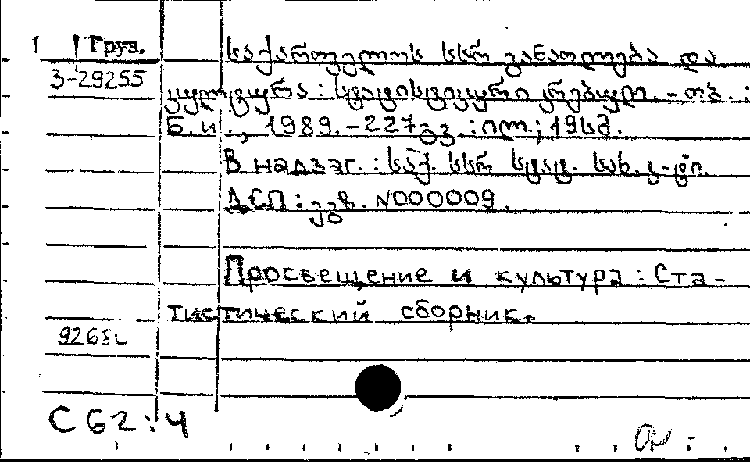 1 Груз. საქართველოს სსრ განათლება და
3-29255 კულტურა : სტატისტიკური კრებული. - თბ. :
Б. и., 1989. - 227გვ. : ილ.; 19სმ.
В надзаг. : საქ. სსრ სტატ. სახ. კ-ტი.
ДСП : ეგზ. N000009.
Просвещение и культура : Ста-
тистический сборник.
С 62 : 4